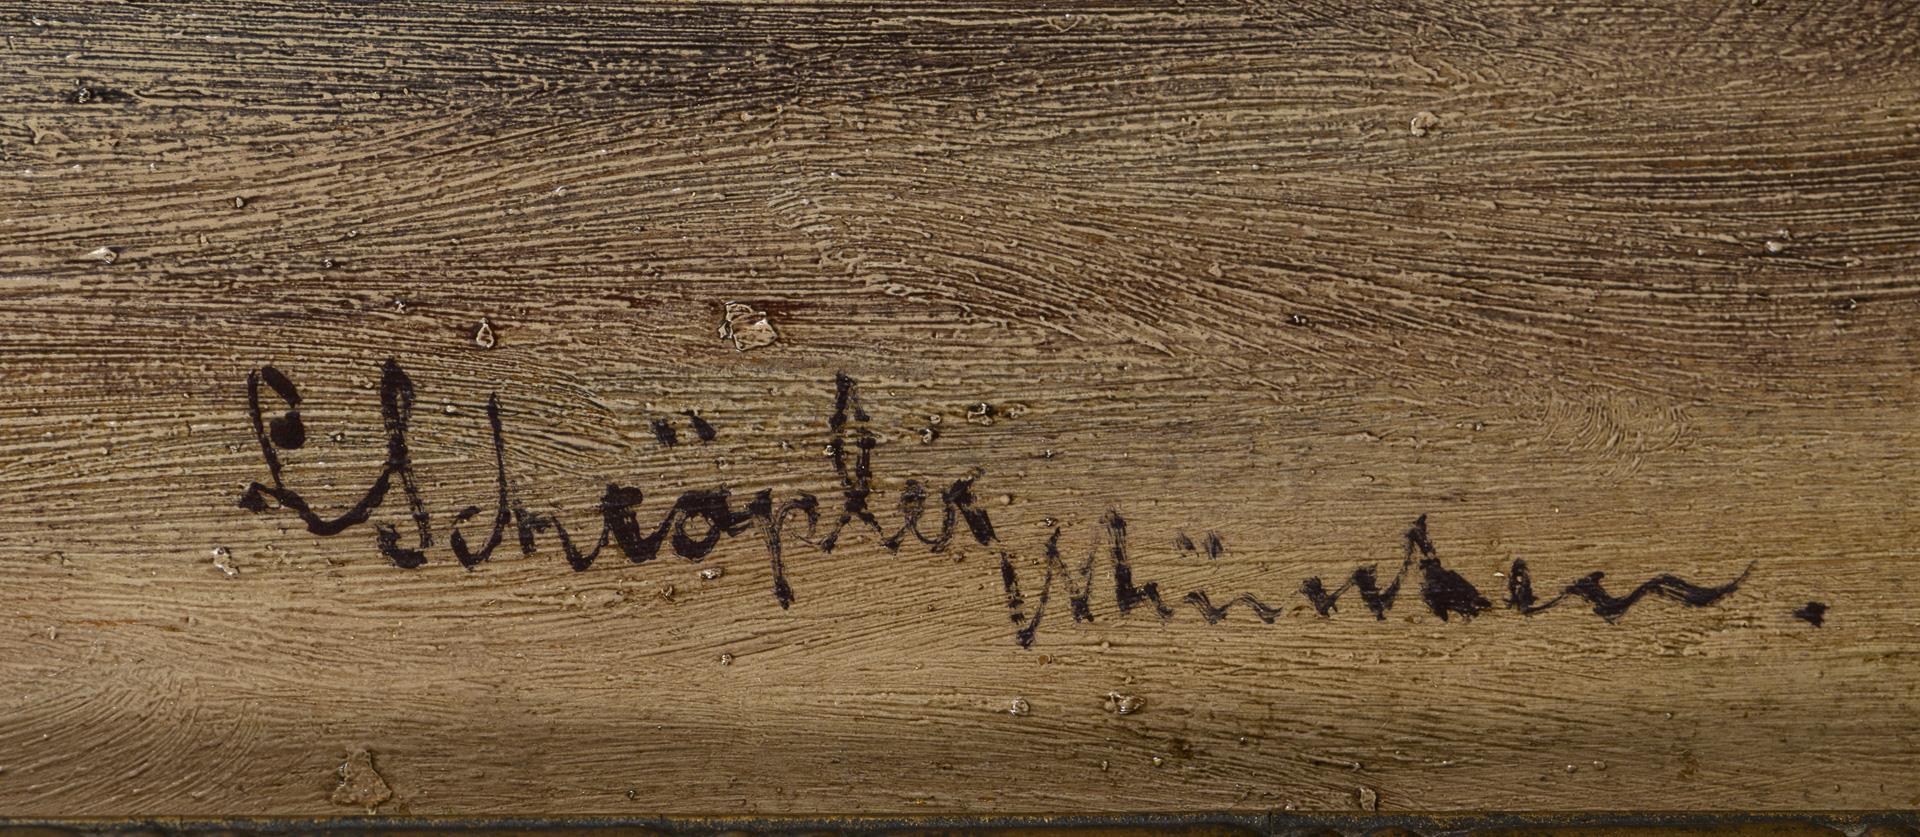 L Schröpler München.